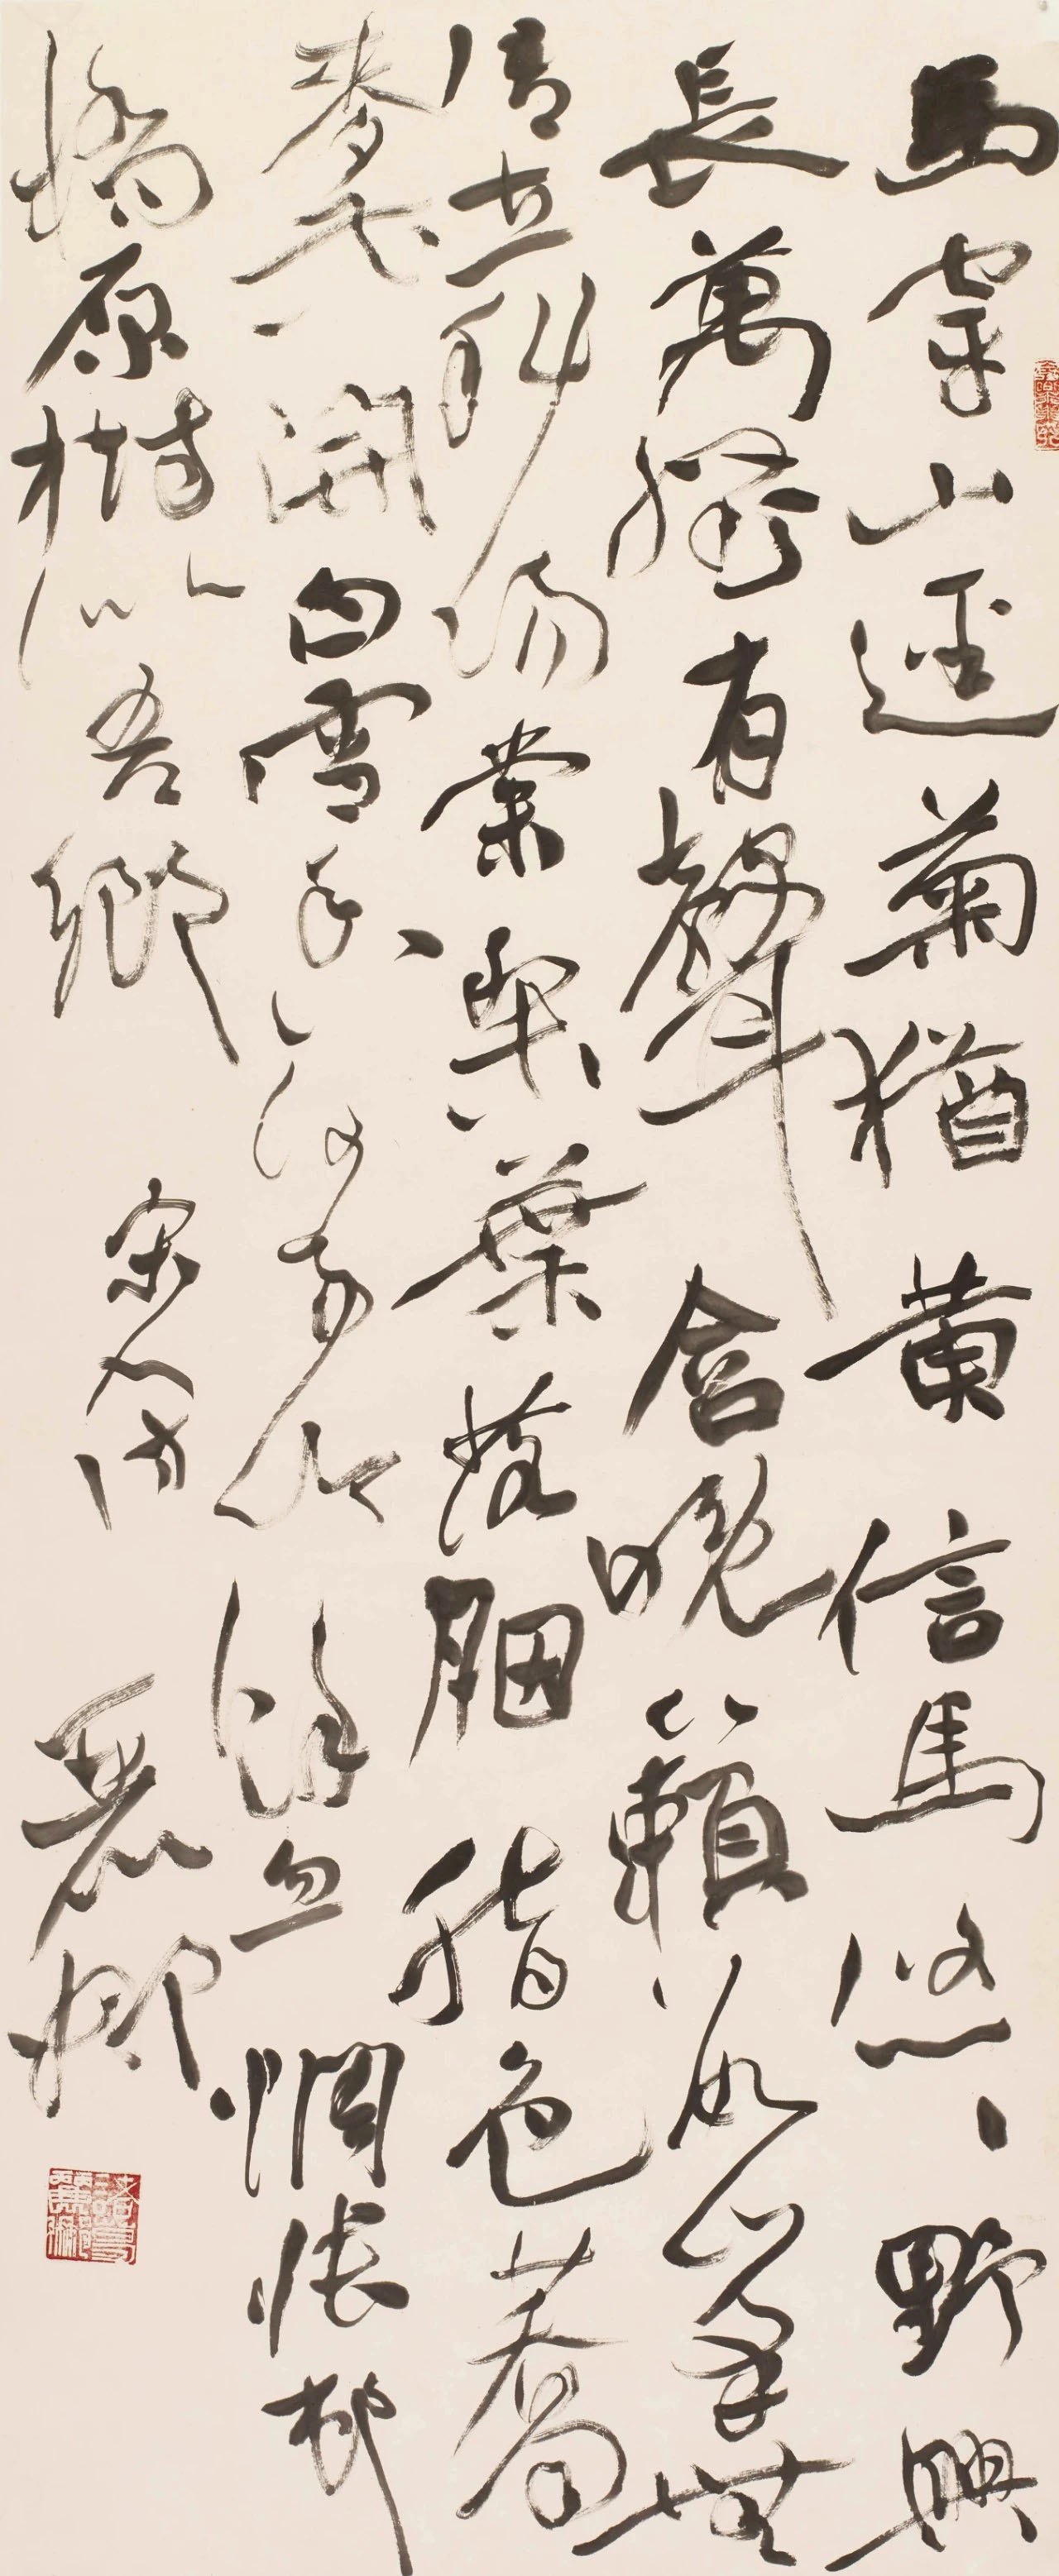 馬穿山逕菊猶黃信馬悠〻野興
長萬壑有聲含晚籟數峯無
語立斜陽棠梨葉落胭脂色蕎
麥花開白雪香何事吟餘忽惆悵村
橋原樹似吾鄉 宋人詩 麗娜